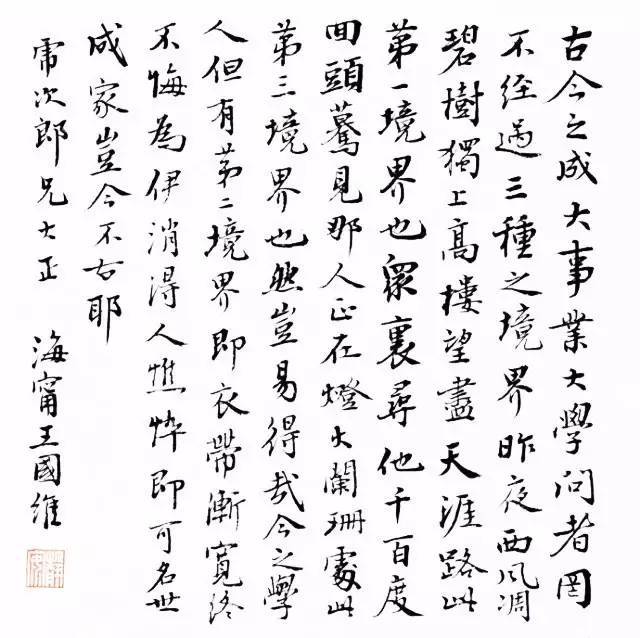 古今之成大事業大學問者罔
不經過三種之境界昨夜西風凋
碧樹獨上高樓望盡天涯路此
第一境界也眾裏尋他千百度
回頭驀見那人正在燈火闌珊處此
第三境界也然豈易得哉今之學
人但有第二境界即衣帶漸寬終
不悔為伊消得人憔悴即可名世
成家豈今不古耶
乕次郎兄大正
海甯王國維